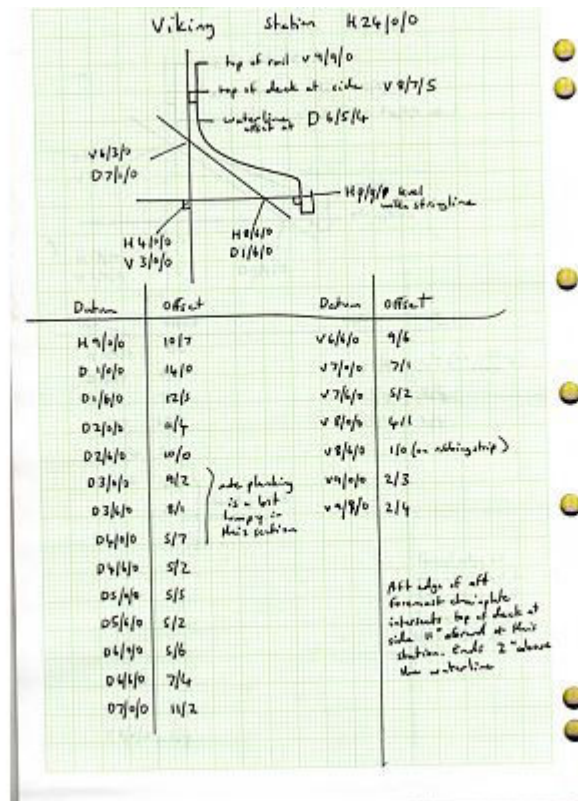 Viking Station H24/0/0
top of rail V 9/9/0
top of deck at side V 8/7/5
waterline offset at D 6/5/4
V6/3/0
D7/0/0
level with stringline
H4/0/0
V 3/0/0
H8/6/0
D1/6/0
Datum Offset
H 9/0/0 10/7
D 1/0/0 14/0
D1/6/0 12/3
D2/0/0 11/4
D2/6/0 10/0
D3/0/0 9/2
D3/6/0 8/1
D4/0/0 5/7
D4/6/0 5/2
D5/0/0 5/5
D5/6/0 5/2
D6/0/0 5/6
D6/6/0 7/4
D7/0/0 11/2
note planking
is a bit
lumpy in
this section
Datum Offset
V6/6/0 9/6
V7/0/0 7/1
V7/6/0 5/2
V8/0/0 4/1
V8/6/0 1/0 (on rubbing strip)
V9/0/0 2/3
V9/8/0 2/4
Aft edge of aft
foremast chainplate
intersects top of deck at
side 11" aft of this
station. Ends 2" above
the waterline